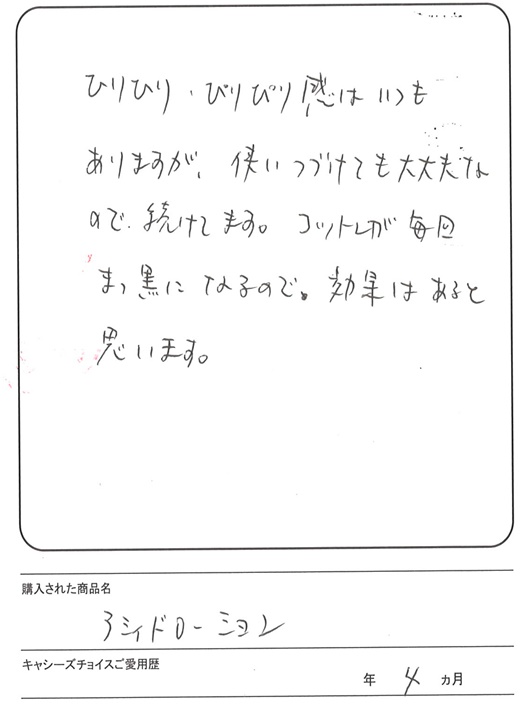 ひりひり・ぴりぴり感はいつも
ありますが、使いつづけても大丈夫な
ので、続けてます。コットンが毎回
まっ黒になるので。効果はあると
思います。
購入された商品名
3シィドローション
キャシーズチョイスご愛用歴
年 4 ヵ月